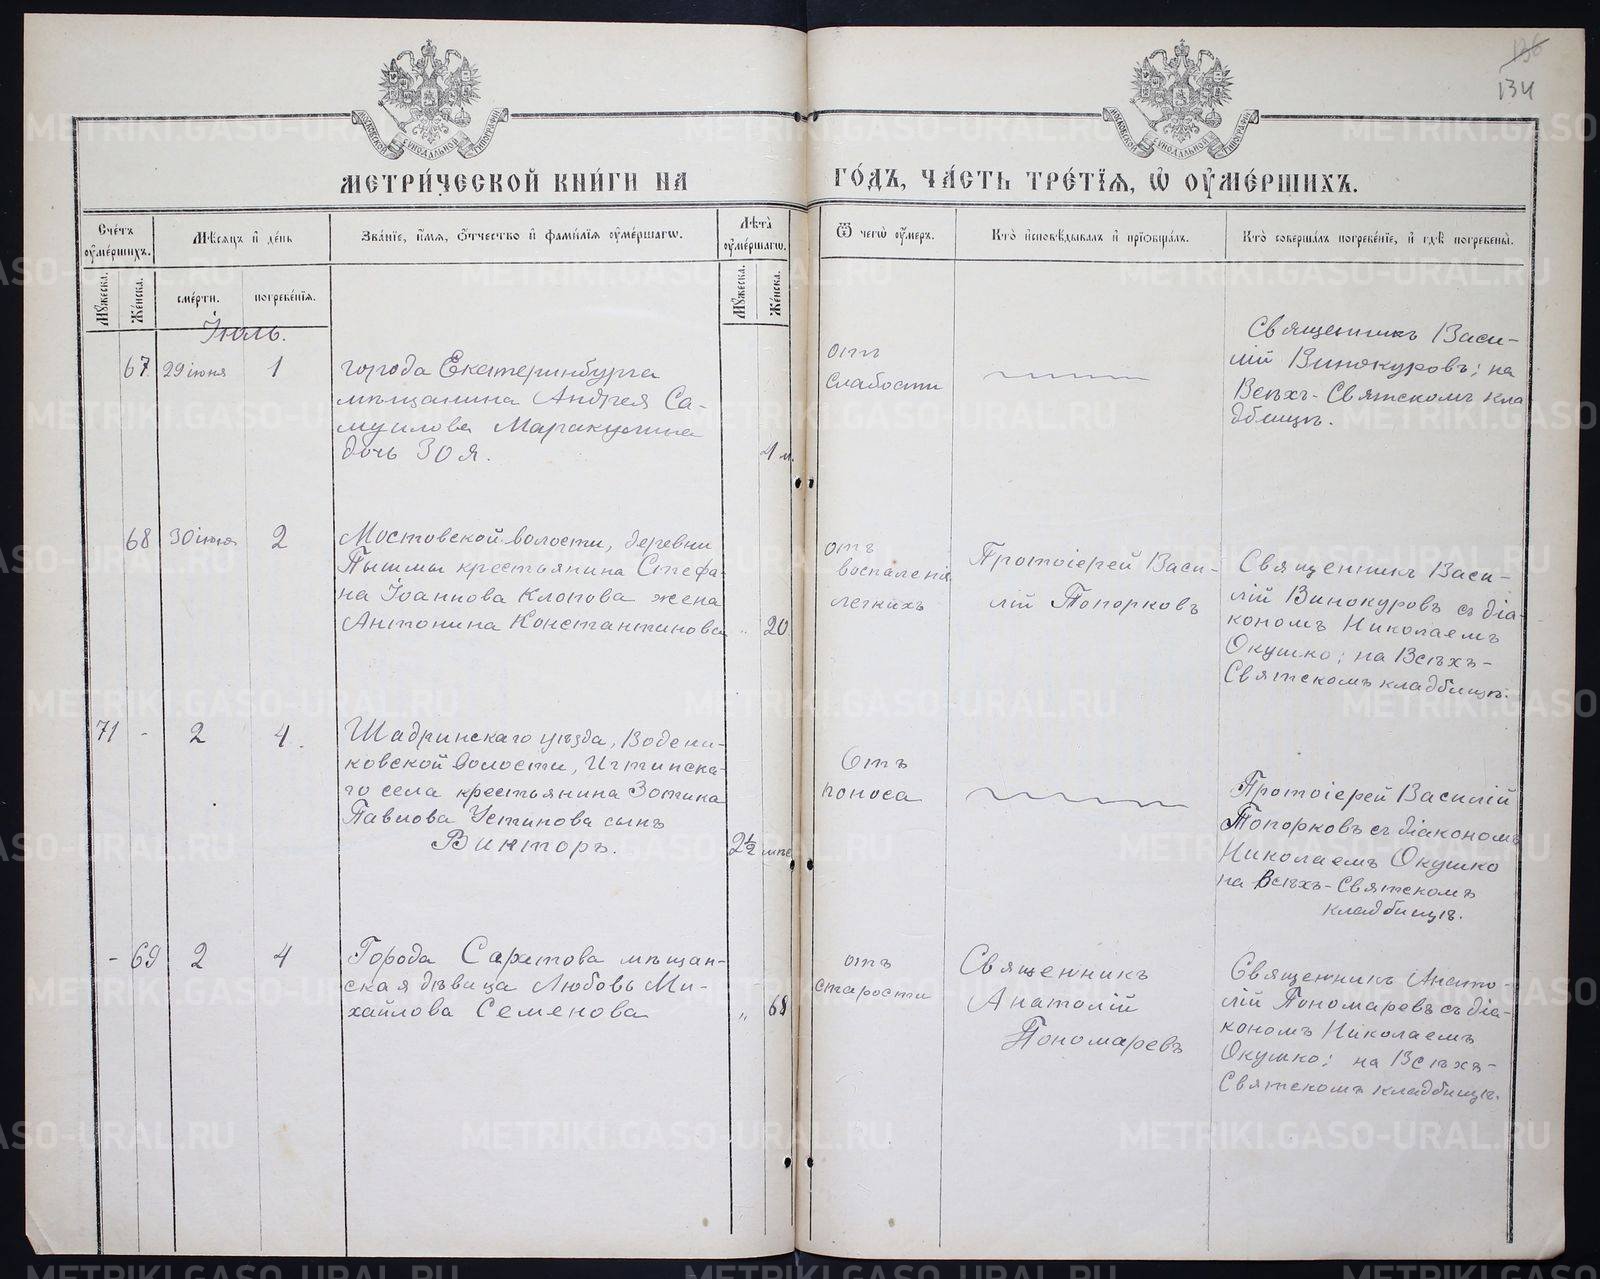 136
134
МОСКОВСКОЙ СѴНОДАЛЬНОЙ ТИПОГРАФІИ
МОСКОВСКОЙ СѴНОДАЛЬНОЙ ТИПОГРАФІИ
МЕТРИ́ЧЕСКОЙ КНИ́ГИ НА
ГО́ДЪ, ЧА́СТЬ ТРЕ́ТЇѦ, Ѡ҆ ОУ҆МЕ́РШИХЪ.
Сче́тъ оу҆ме́ршихъ.
Мѣ́сѧцъ и҆ де́нь
Зва́нїе, и҆́мѧ, ѻ҆́тчество и҆ фами́лїѧ оу҆ме́ршагѡ.
Лѣ̑та оу҆ме́ршагѡ.
Ѿ чегѡ̀ оу҆́меръ.
Кто̀ и҆сповѣ́дывалъ и҆ прїѻбща́лъ.
Кто̀ соверша́лъ погребе́нїе, и҆ гдѣ̀ погребены̀.
Мꙋ́жеска.
Же́нска.
сме́рти.
погребе́нїѧ.
Мꙋ́жеска.
Же́нска.
Іюль.
67 29 іюня 1
города Екатеринбурга
мѣщанина Андрея Са-
муилова Маракулина
дочь Зоя.
1 м.
отъ
слабости
Священникъ Васи-
лій Винокуровъ; на
Всѣхъ-Святскомъ кла
дбищѣ.
68 30 іюня 2
Мостовской волости, деревни
Пышмы крестьянина Стефа-
на Іоаннова Клопова жена
Антонина Константинова
" 20
отъ
воспаленія
легкихъ
Протоіерей Васи-
лій Топорковъ
Священникъ Васи-
лій Винокуровъ съ діа-
кономъ Николаемъ
Окушко; на Всѣхъ-
Святскомъ кладбищѣ.
71 - 2 4.
Шадринскаго уѣзда, Водени-
ковской волости, Ичкинска-
го села крестьянина Зотика
Павлова Устинова сынъ
Викторъ.
2½ мѣс
Отъ
поноса
Протоіерей Василій
Топорковъ съ діакономъ
Николаемъ Окушко
на Всѣхъ-Святскомъ
кладбищѣ.
- 69 2 4
Города Саратова мѣщан-
ская дѣвица Любовь Ми-
хайлова Семенова
" 68
отъ
старости
Священникъ
Анатолій
Пономаревъ
Священникъ Анато-
лій Пономаревъ съ діа-
кономъ Николаемъ
Окушко; на Всѣхъ-
Святскомъ кладбищѣ.
METRIKI.GASO-URAL.RU